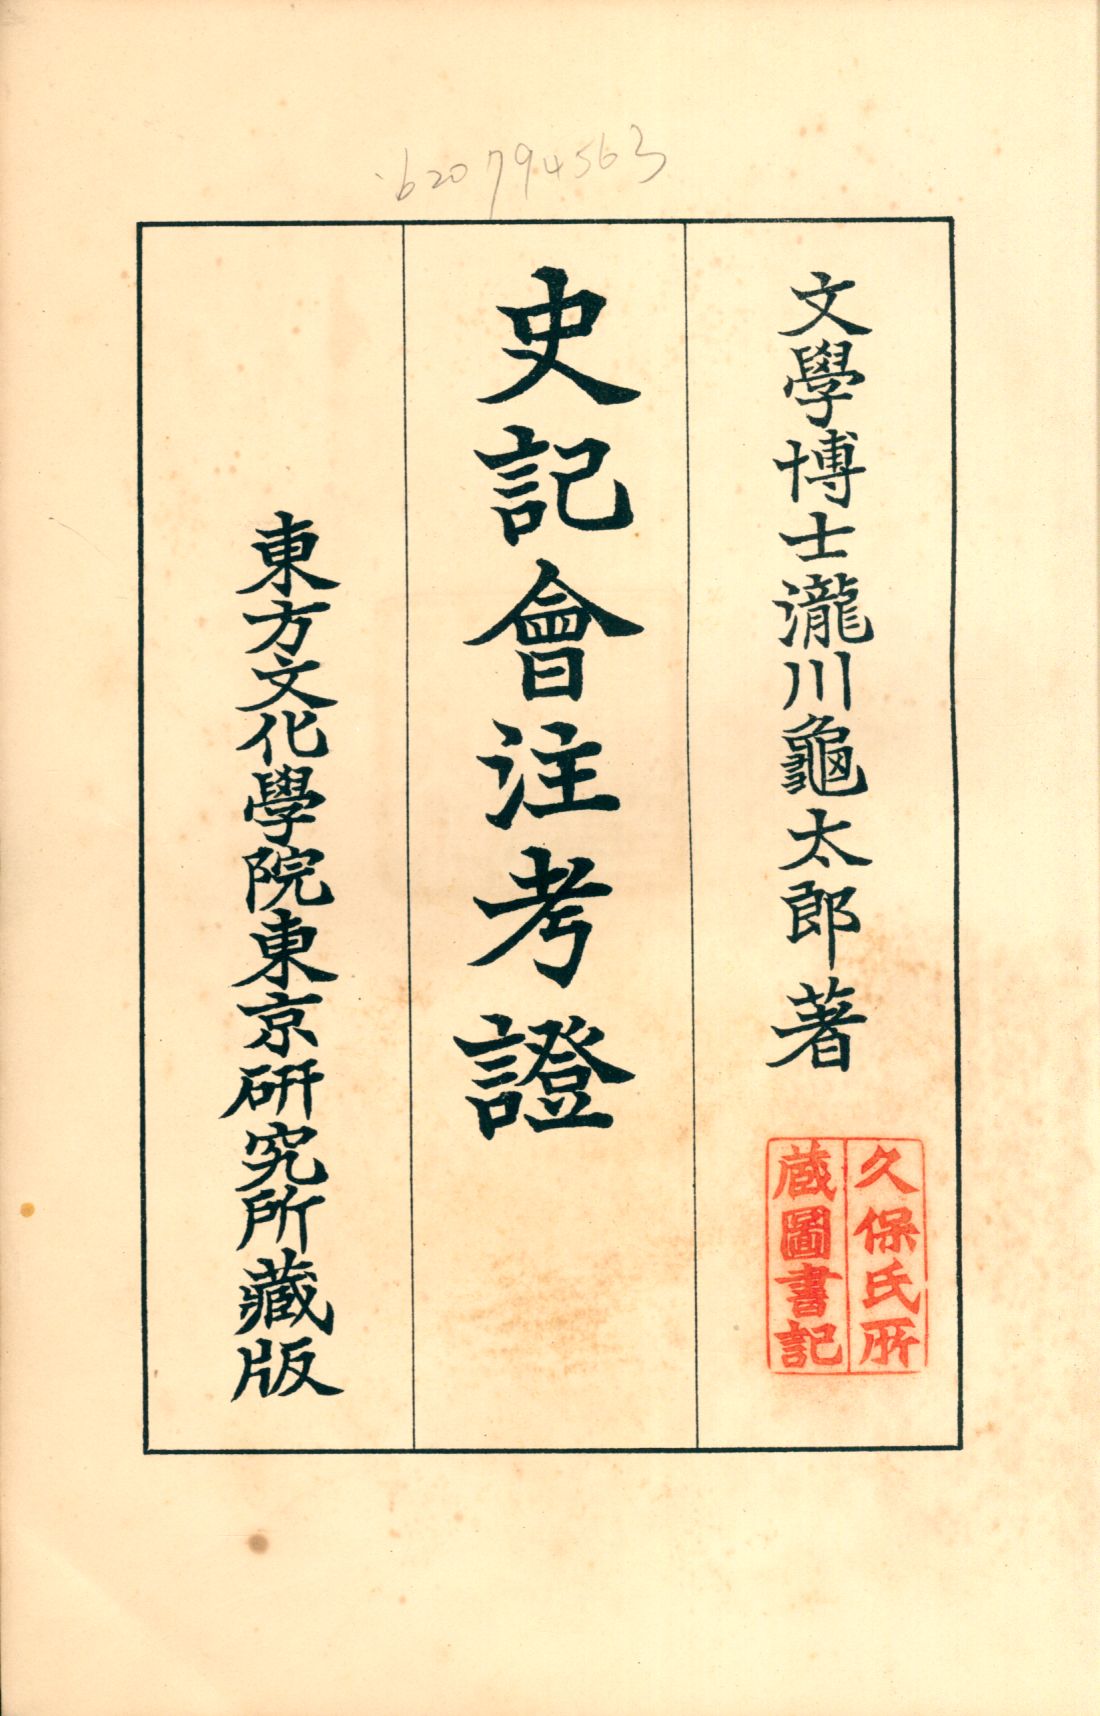 620794563
文學博士瀧川龜太郎著
史記會注考證
東方文化學院東京研究所藏版
久保氏所
蔵圖書記